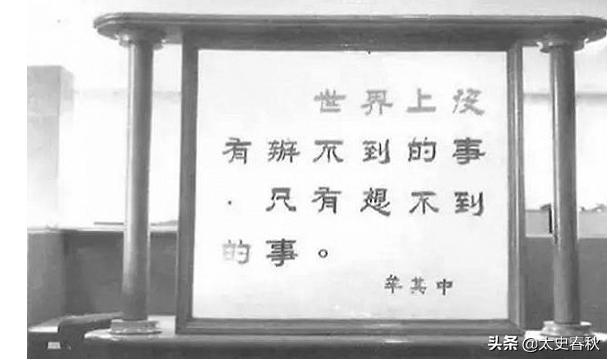 世界上没
有办不到的事
，只有想不到
的事。
牟其中
头条 @太史春秋